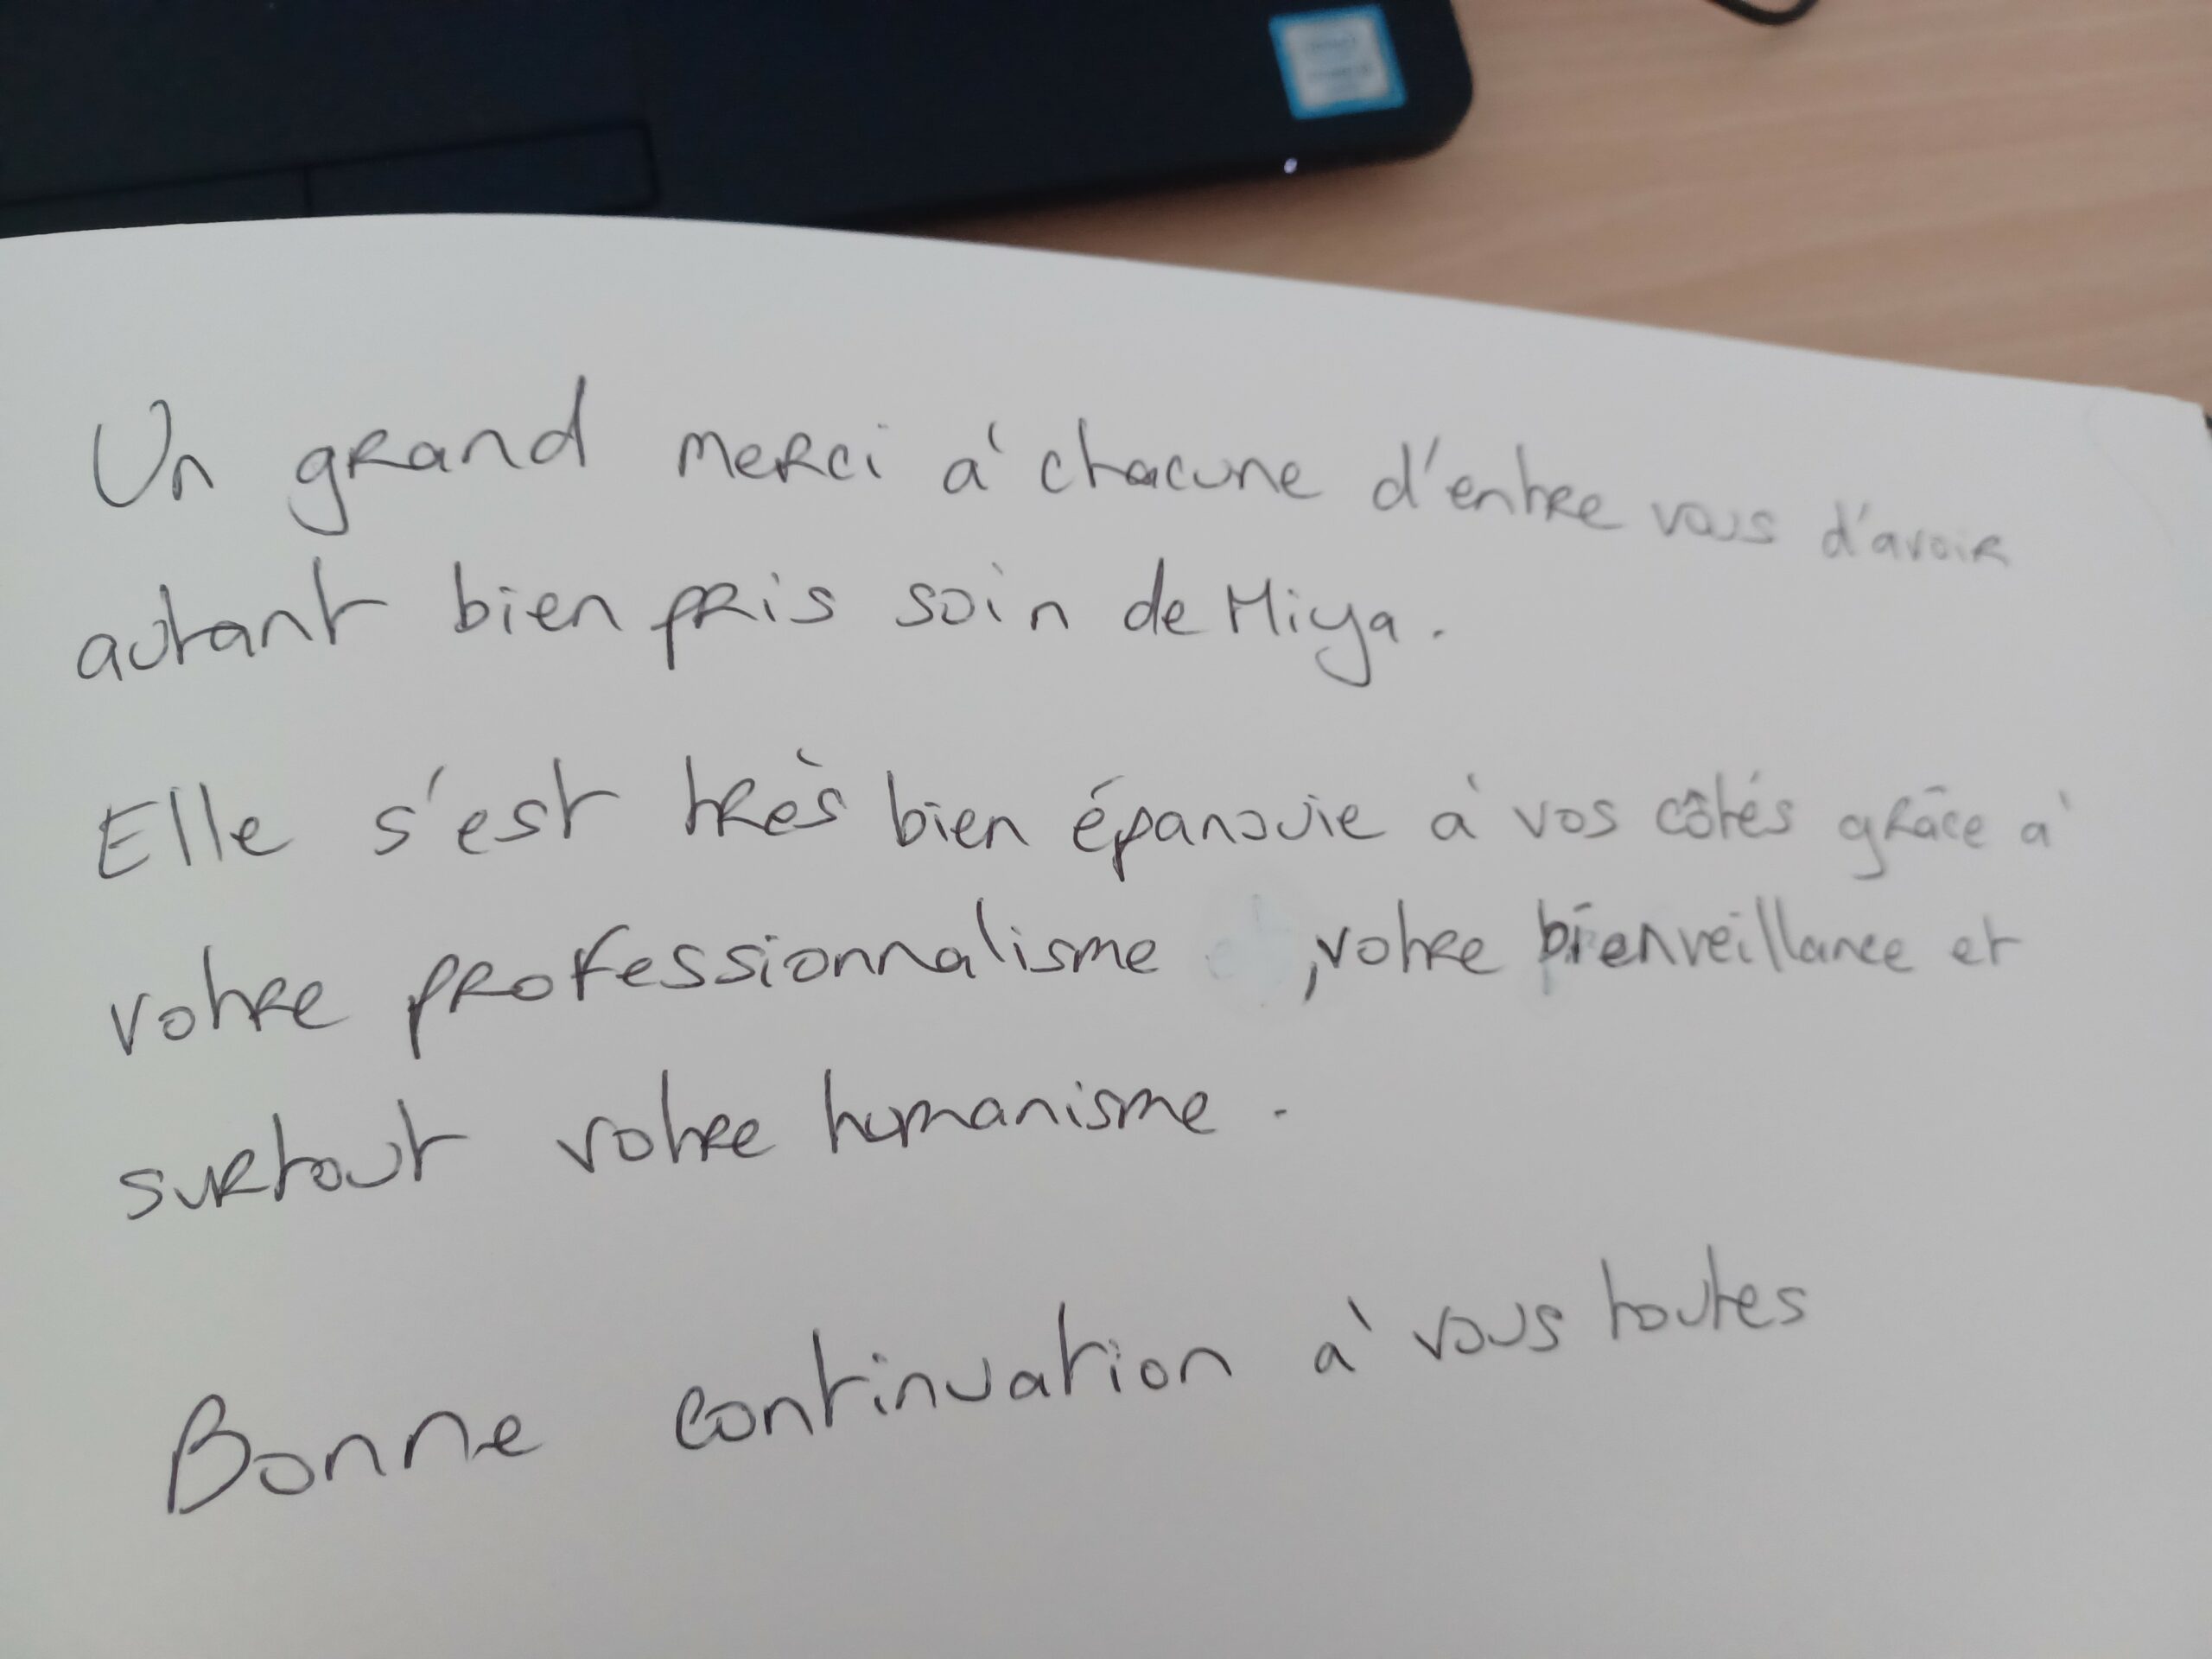 Un grand merci à chacune d'entre vous d'avoir
autant bien pris soin de Miya.
Elle s'est très bien épanouie à vos côtés grâce à
votre professionnalisme , votre bienveillance et
surtout votre humanisme.
Bonne continuation à vous toutes